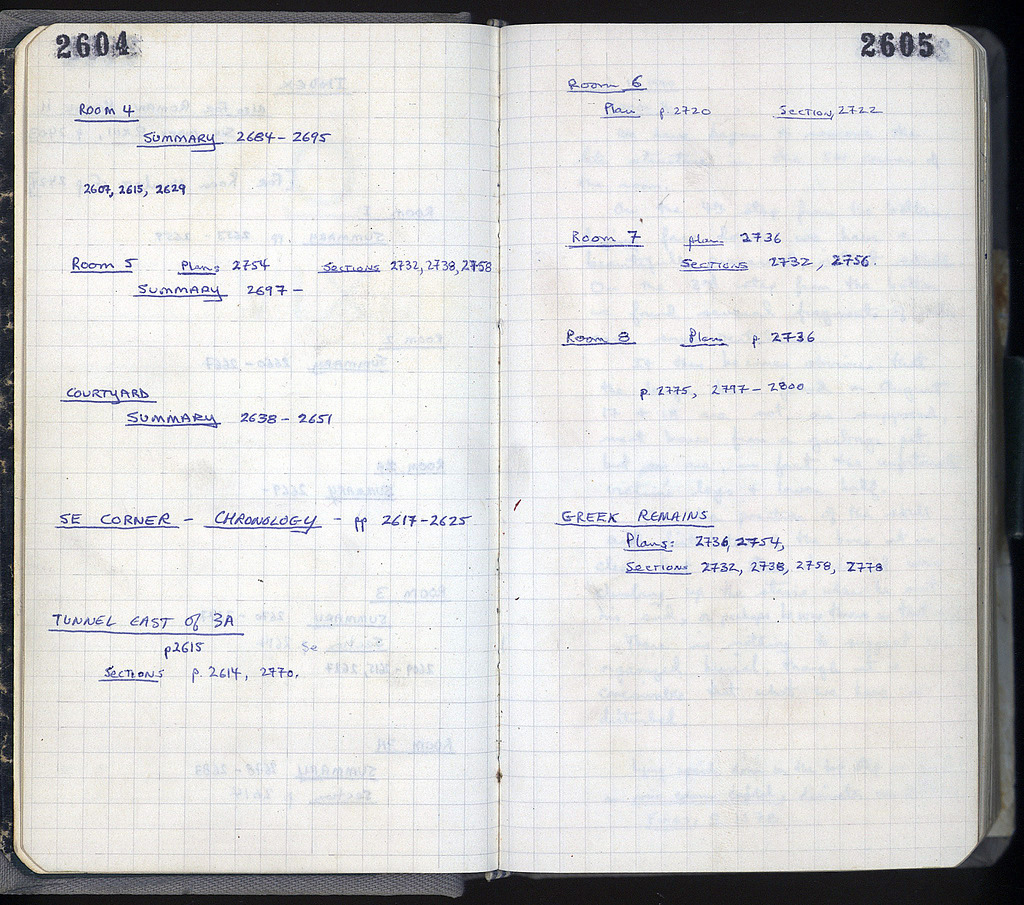 2604
ROOM 4
SUMMARY 2684 - 2695
2607, 2615, 2629
Room 5 Plan: 2754 SECTIONS 2732, 2738, 2758
SUMMARY 2697 -
COURTYARD
SUMMARY 2638 - 2651
SE CORNER - CHRONOLOGY - pp 2617-2625
TUNNEL EAST of 3A
p2615 Se
SECTIONS p. 2614, 2770.
2605
Room 6
Plan p. 2720 SECTION, 2722
Room 7 plan 2736
SECTIONS 2732, 2756.
Room 8 Plan p. 2736
p. 2775, 2797 - 2800
GREEK REMAINS
Plans: 2736, 2754,
SECTIONS 2732, 2738, 2758, 2778